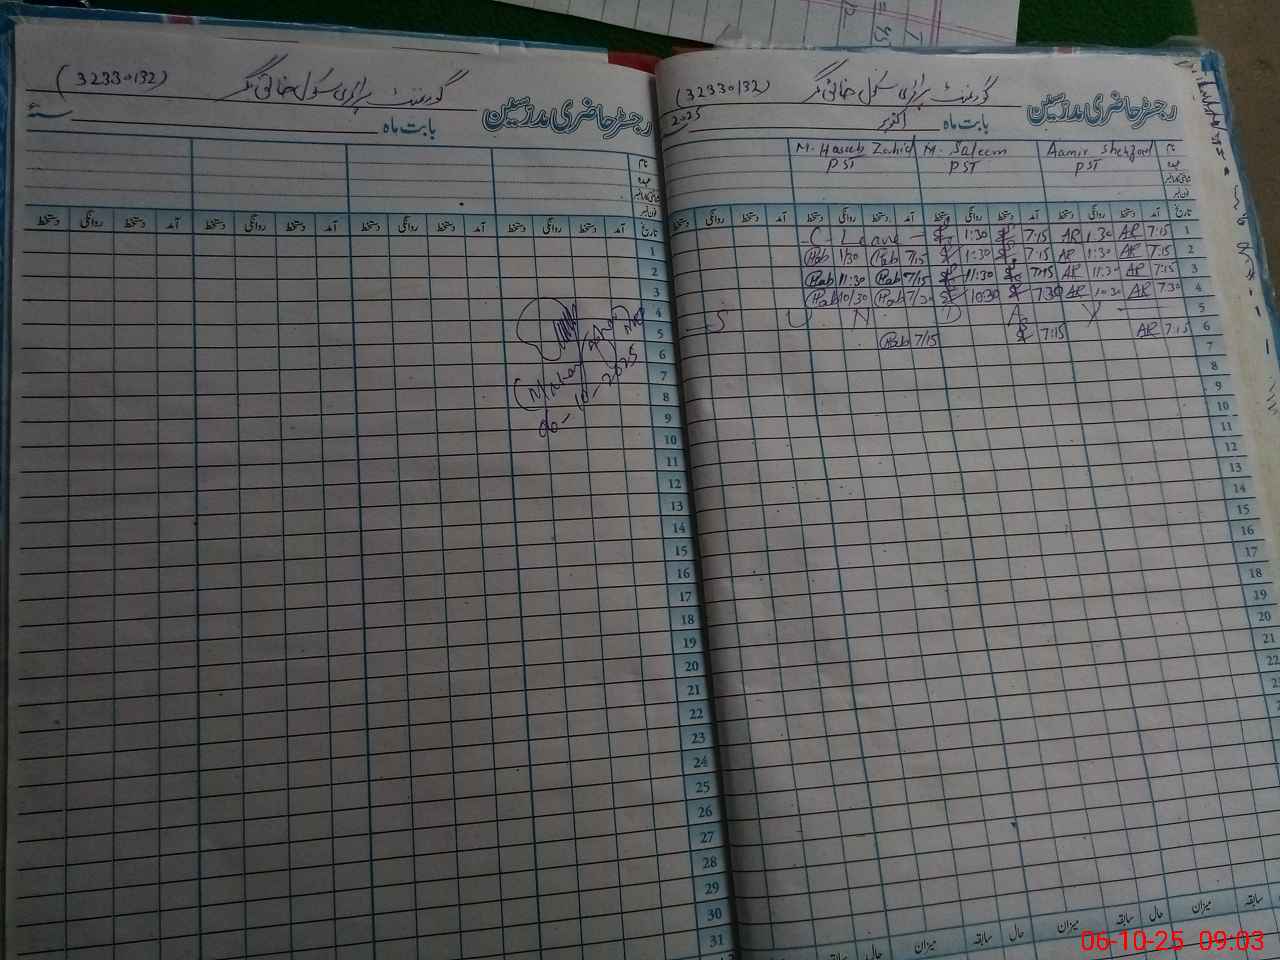 (32330132) گورنمنٹ پرائمری سکول
رجسٹر حاضری مدرسین
بابت ماہ
2025
رجسٹر حاضری مدرسین
(32330132) گورنمنٹ پرائمری سکول
بابت ماہ اکتوبر
نام Aamir Shehzad M. Saleem M. Haseeb Zahid
عہدہ PST PST PST
تاریخ آمد دستخط روانگی دستخط آمد دستخط روانگی دستخط آمد دستخط روانگی دستخط آمد دستخط روانگی دستخط
تاریخ آمد دستخط روانگی دستخط آمد دستخط روانگی دستخط آمد دستخط روانگی دستخط آمد دستخط روانگی دستخط
1 7:15 AR 1:30 AR 7:15 1:30 C-Leave
2 7:15 AR 1:30 AR 7:15 1:30 7/15 Hab 1/30 Hab
3 7:15 AR 11:30 AR 7:15 11:30 7/15 Hab 11:30 Hab
4 7:30 AR 10:30 AR 7:30 10:30 7/30 Hab 10/30 Hab
5 S U N D A Y
6 7:15 AR 7:15 7/15 Hab
7
8
9
10
11
12
13
14
15
16
17
18
19
20
21
22
1
2
3
4
5
6
7
8
9
10
11
12
13
14
15
16
17
18
19
20
21
22
23
24
25
26
27
28
29
30
31
06-10-2025
سابقہ میزان حال سابقہ میزان حال سابقہ میزان حال
06-10-25 09:03